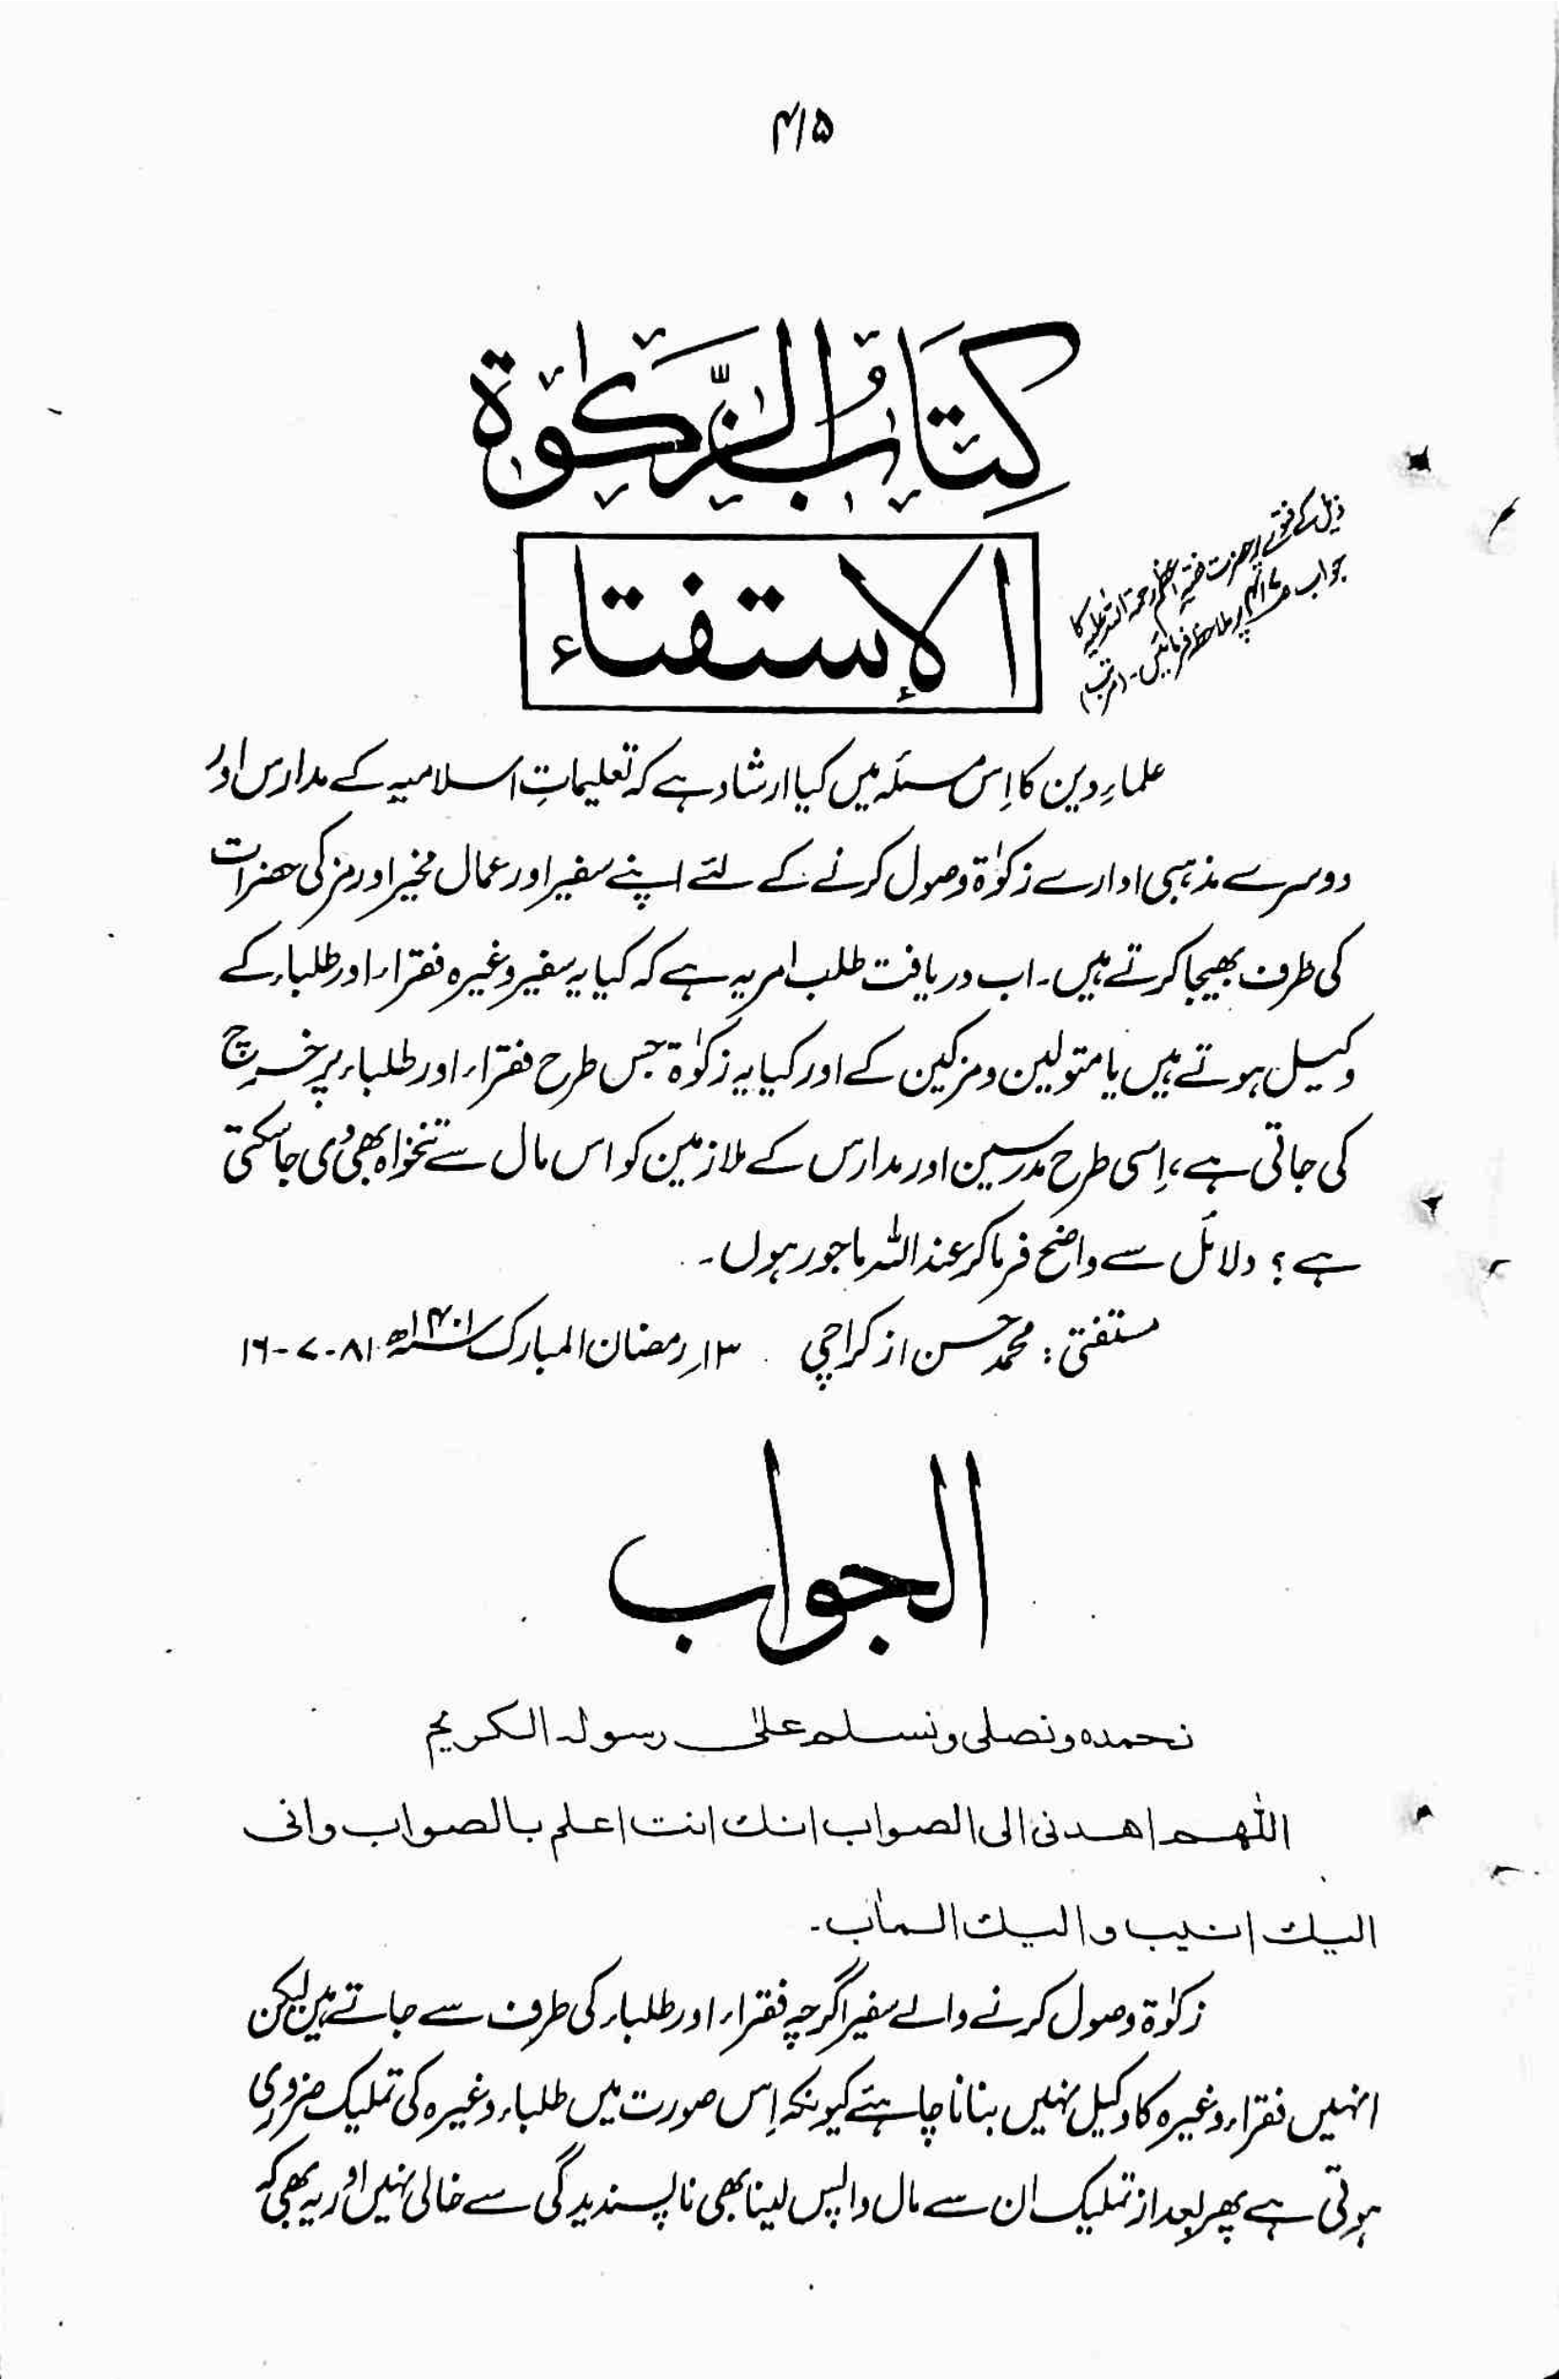 ۴۱۵
كِتَابُ الزَّكٰوة
الإستفتاء
ذیل کے فتوے پر حضرت فقیہ اعظم رحمۃ اللہ علیہ کا
جواب پر ملاحظہ فرمائیں۔ (مرتب)
علماءِ دین کا اِس مسئلہ میں کیا ارشاد ہے کہ تعلیماتِ اسلامیہ کے مدارس اور
دوسرے مذہبی ادارے زکوٰۃ وصول کرنے کے لئے اپنے سفیر اور عمال مخیر اور مزکی حضرات
کی طرف بھیجا کرتے ہیں۔ اب دریافت طلب امر یہ ہے کہ کیا یہ سفیر وغیرہ فقراء اور طلباء کے
وکیل ہوتے ہیں یا متولین و مزکین کے اور کیا یہ زکوٰۃ جس طرح فقراء اور طلباء پر خرچ
کی جاتی ہے، اِسی طرح مدرسین اور مدارس کے ملازمین کو اس مال سے تنخواہ بھی دی جا سکتی
ہے؟ دلائل سے واضح فرما کر عند اللہ ماجور ہوں۔
مستفتی: محمد حسن از کراچی ۱۳؍ رمضان المبارک سنہ ۱۴۰۱ھ ۸۱-۷-۱۶
الجواب
نحمده ونصلى ونسلم علىٰ رسوله الكريم
اللّٰهم اهدنى الى الصواب انك انت اعلم بالصواب وانى
اليك انيب واليك المآب۔
زکوٰۃ وصول کرنے والے سفیر اگرچہ فقراء اور طلباء کی طرف سے جاتے ہیں لیکن
انہیں فقراء وغیرہ کا وکیل نہیں بنانا چاہئے کیونکہ اِس صورت میں طلباء وغیرہ کی تملیک ضروری
ہوتی ہے پھر بعد از تملیک ان سے مال واپس لینا بھی ناپسندیدگی سے خالی نہیں اور یہ بھی کہ